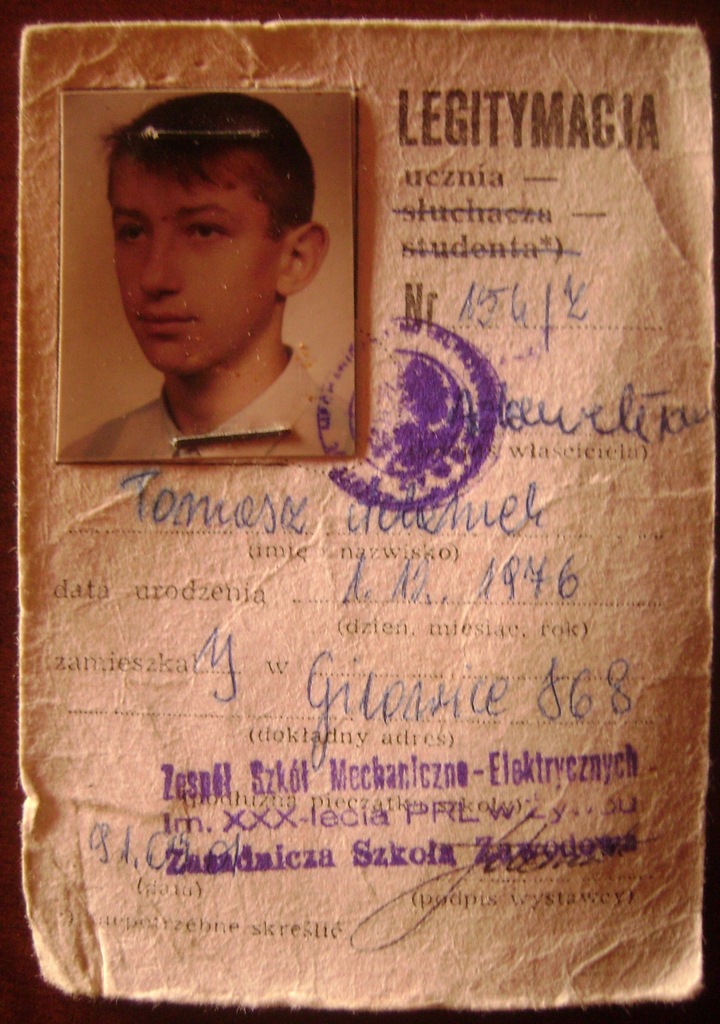 LEGITYMACJA
ucznia —
słuchacza —
studenta*)
Nr 154/Z
właściciela)
Tomasz
(imię i nazwisko)
data urodzenia 1.12.1976
(dzień, miesiąc, rok)
zamieszkały w Gilowice 868
(dokładny adres)
Zespół Szkół Mechaniczno-Elektrycznych
(podłużna pieczątka szkoły)
im. XXX-lecia PRL w Żywcu
Zasadnicza Szkoła Zawodowa
(data) (podpis wystawcy)
*) niepotrzebne skreślić